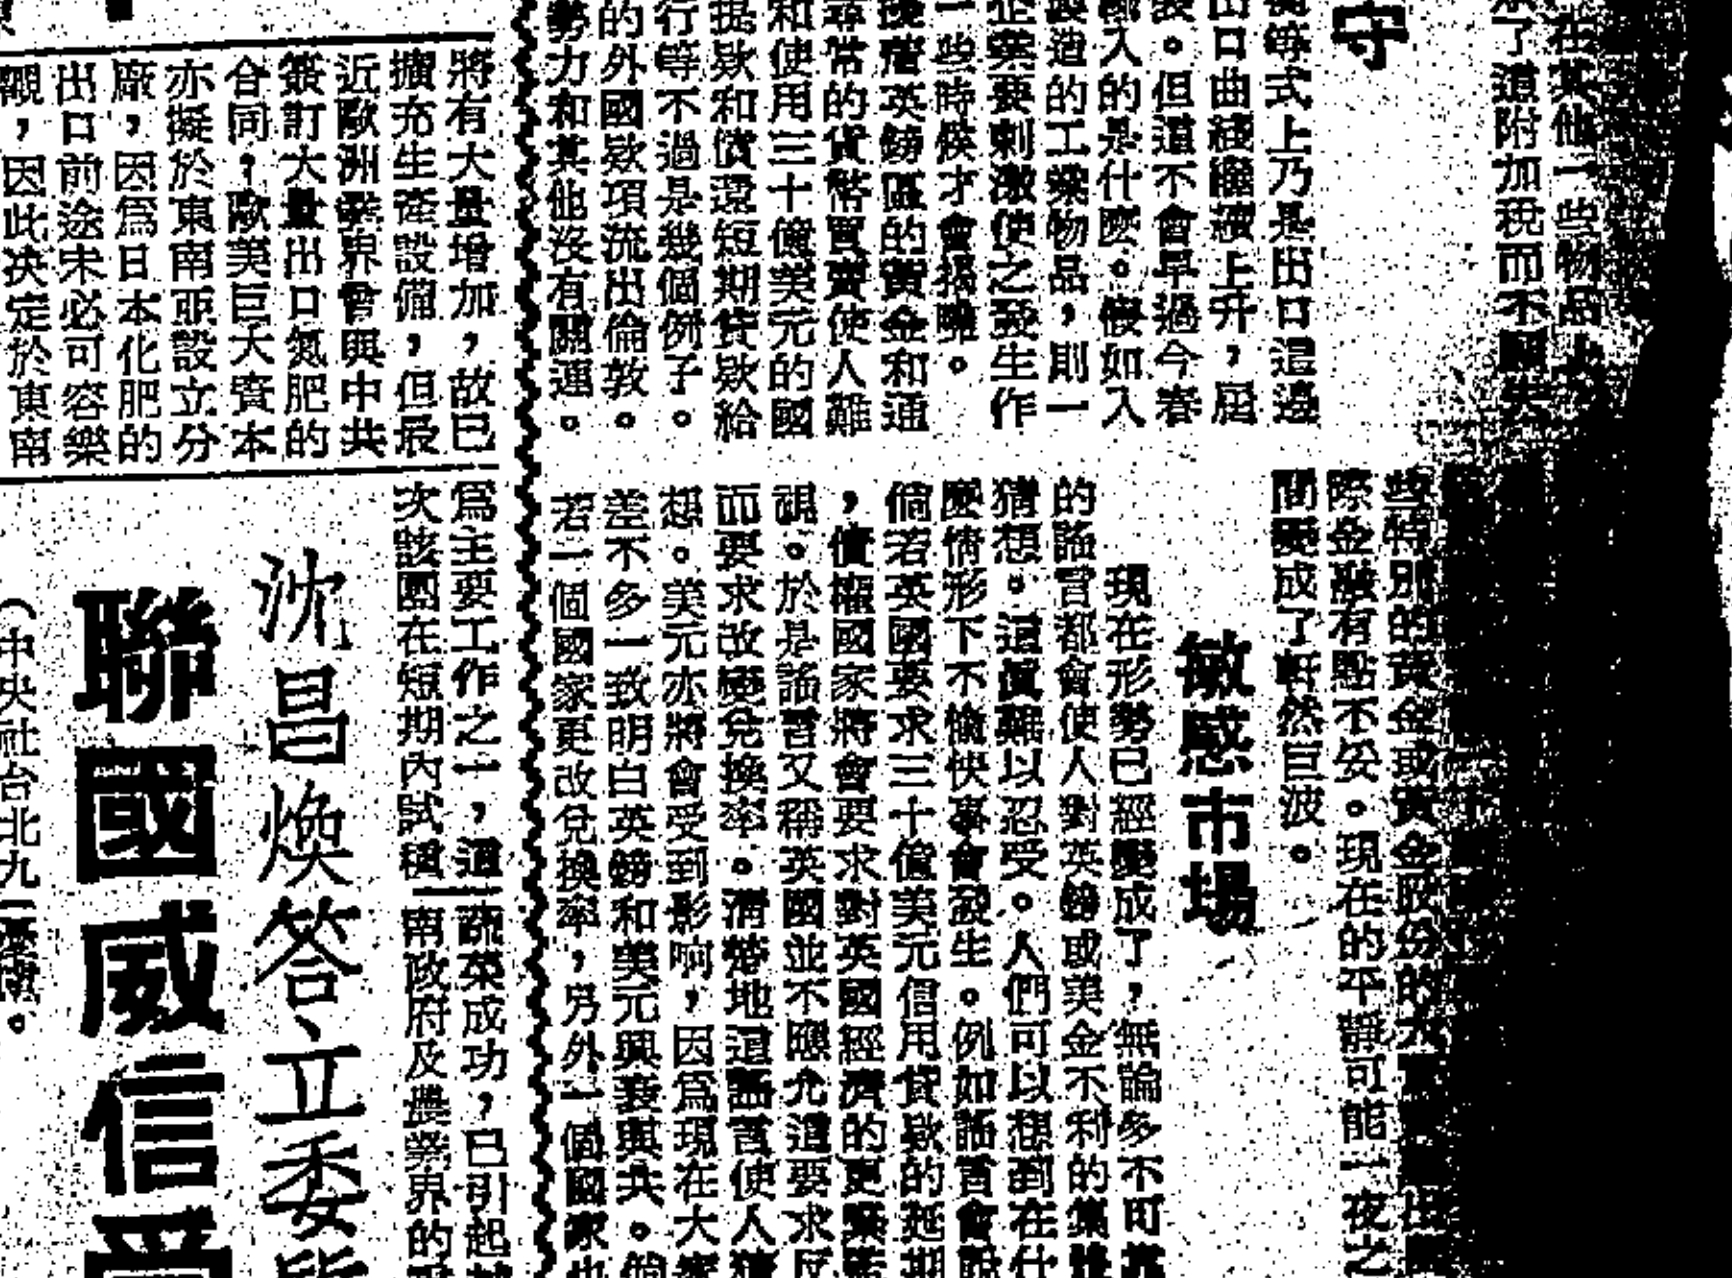 守
在其他一些物品上
了這附加稅而不願失
等式上乃是出口這邊
出口曲綫繼續上升，屆
。但這不會早過今春
入的是什麼。假如入
製造的工業物品，則一
企業要刺激使之發生作
一些時候才會揭曉。
英鎊區的黃金和通
尋常的貨幣買賣使人難
和使用三十億美元的國
提欵和償還短期貸欵給
行等不過是幾個例子。
的外國欵項流出倫敦。
勢力和其他沒有關連。
些特別的黃金或黃金股份的大
際金融有點不妥。現在的平靜可能一夜之
間變成了軒然巨波。
敏感市場
現在形勢已經變成了，無論多不可
的謠言都會使人對英鎊或美金不利的
猜想。這眞難以忍受。人們可以想到在什
麼情形下不愉快事會發生。例如謠言會說
倘若英國要求三十億美元信用貸欵的延期
，債權國家將會要求對英國經濟的更緊
視。於是謠言又稱英國並不應允這要求反
而要求改變兌換率。清楚地這謠言使人猜
想。美元亦將會受到影响，因爲現在大家
差不多一致明白英鎊和美元興衰與共。倘
若一個國家更改兌換率，另外一個國家也
將有大量增加，故已
擴充生產設備，但最
近歐洲業界會與中共
簽訂大量出口氮肥的
合同，歐美巨大資本
亦擬於東南亞設立分
廠，因爲日本化肥的
出口前途未必可容樂
觀，因此决定於東南
爲主要工作之一，這
次該團在短期內試種
蔬菜成功，已引起
南政府及農業界的
沈昌煥答立委
聯國威信
（中央社台北九